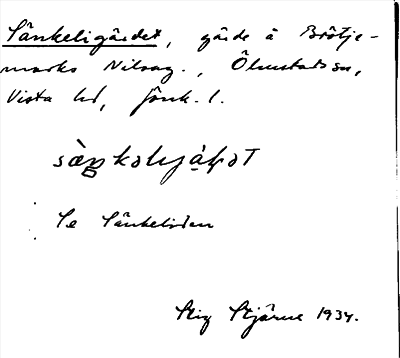 Sänkeligärdet, gärde å Brötje-
marks Nilsag., Ölmstads sn,
Vista hd, Jönk. l.
Se Sänkeliden
Stig Stjärne 1934.